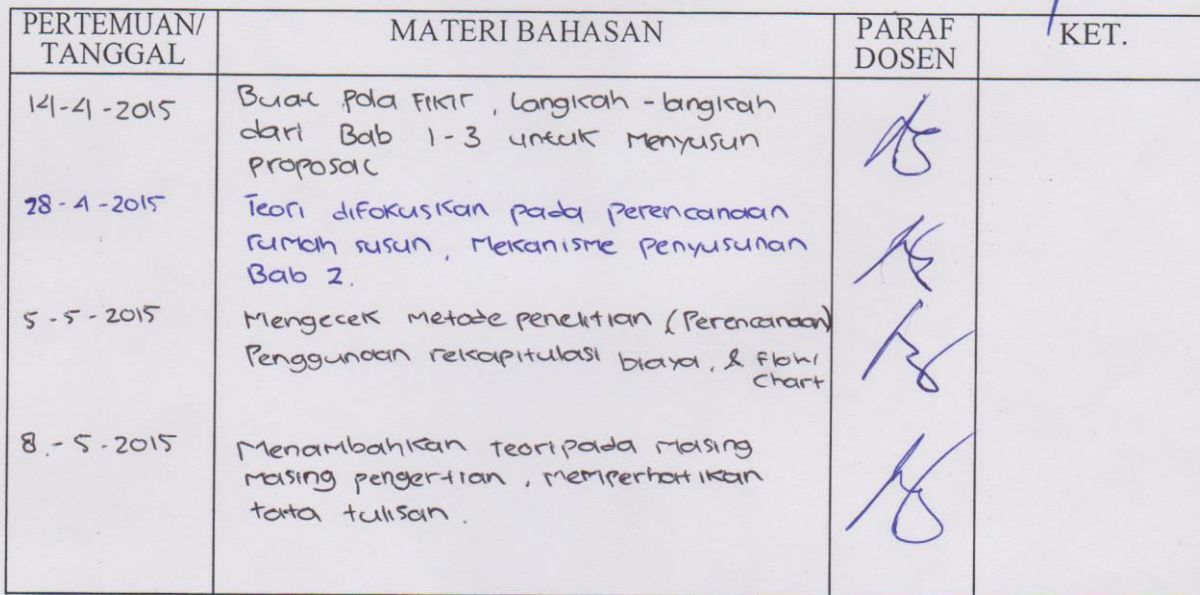 PERTEMUAN/ TANGGAL MATERI BAHASAN PARAF DOSEN KET.
14-4-2015 Buat Pola Fikir, Langkah-langkah
dari Bab 1-3 untuk Menyusun
proposal
28-4-2015 Teori difokuskan pada perencanaan
rumah susun, Mekanisme penyusunan
Bab 2.
5-5-2015 Mengecek Metode penelitian (Perencanaan)
Penggunaan rekapitulasi biaya, & Flow
chart
8-5-2015 Menambahkan teori pada masing
masing pengertian, memperhatikan
tata tulisan.